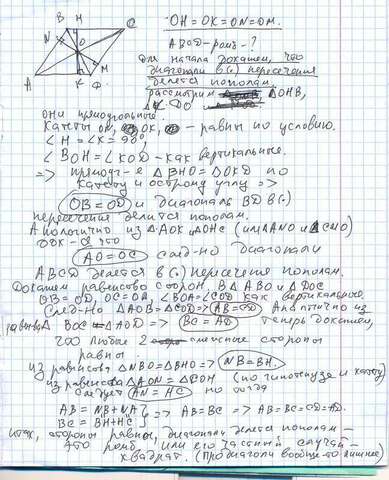 B H C
N O
A K D M
OH = OK = ON = OM.
ABCD – ромб – ?
Для начала докажем, что
диагонали в (·) пересечения
делятся пополам
рассмотрим △OHB,
они прямоугольные.
Катеты OH, OK, – равны по условию.
∠H = ∠K = 90°,
∠BOH = ∠KOD – как вертикальные.
=> △BHO = △OKD по
катету и острому углу =>
OB = OD и диагональ BD в (·)
пересечения делится пополам.
Аналогично из △AOK и △OHC (или △ANO и △CMO)
что
AO = OC след-но диагонали
ABCD делятся в (·) пересечения пополам.
Докажем равенство сторон, в △ABO и △DOC
OB = OD, OC = OA, ∠BOA = ∠COD как вертикальные.
След-но △AOB = △COD => AB = CD Аналогично из
△BOC = △AOD => BC = AD теперь докажем,
что любые 2 смежные стороны
равны.
из равенства △NBO = △BHO => NB = BH.
из равенства △AON = △COH (по гипотенузе и катету)
следует AN = HC но тогда
AB = NB + NA
BC = BH + HC => AB = BC => AB = BC = CD = AD.
итак, стороны равны, диагонали делятся пополам –
это ромб, или его частный случай –
квадрат. (Про диагонали вообще-то лишнее)